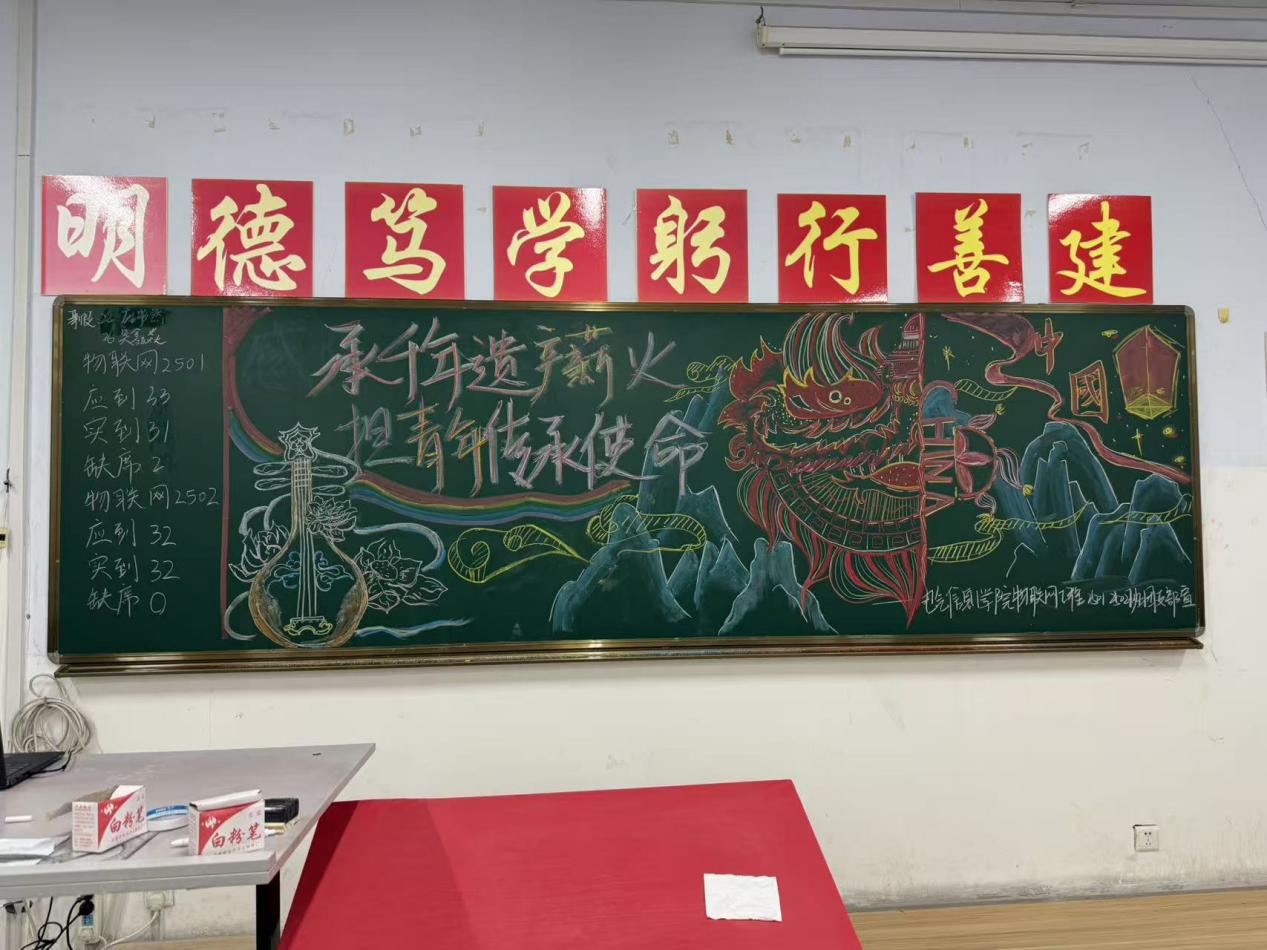 明德笃学躬行善建
物联网2501
应到 33
实到 31
缺席 2
物联网2502
应到 32
实到 32
缺席 0
承千年遗产薪火
担青年传承使命
中
國
CHINA
信息学院物联网工程
白粉笔
白粉笔